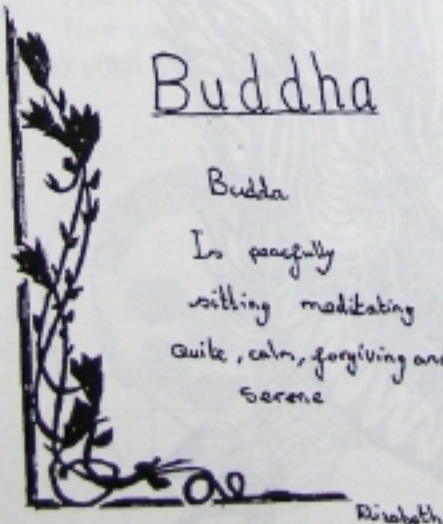 Buddha
Budda
Is peacefully
sitting meditating
Quite, calm, forgiving and
serene
Elizabeth